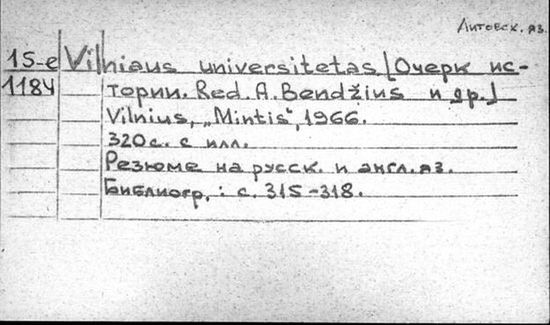 Литовск. яз.
15-е Vilniaus universitetas [Очерк ис-
1184 тории. Red. A. Bendžius и др.]
Vilnius, „Mintis", 1966.
320 с. с илл.
Резюме на русск. и англ. яз.
Библиогр.: с. 315-318.